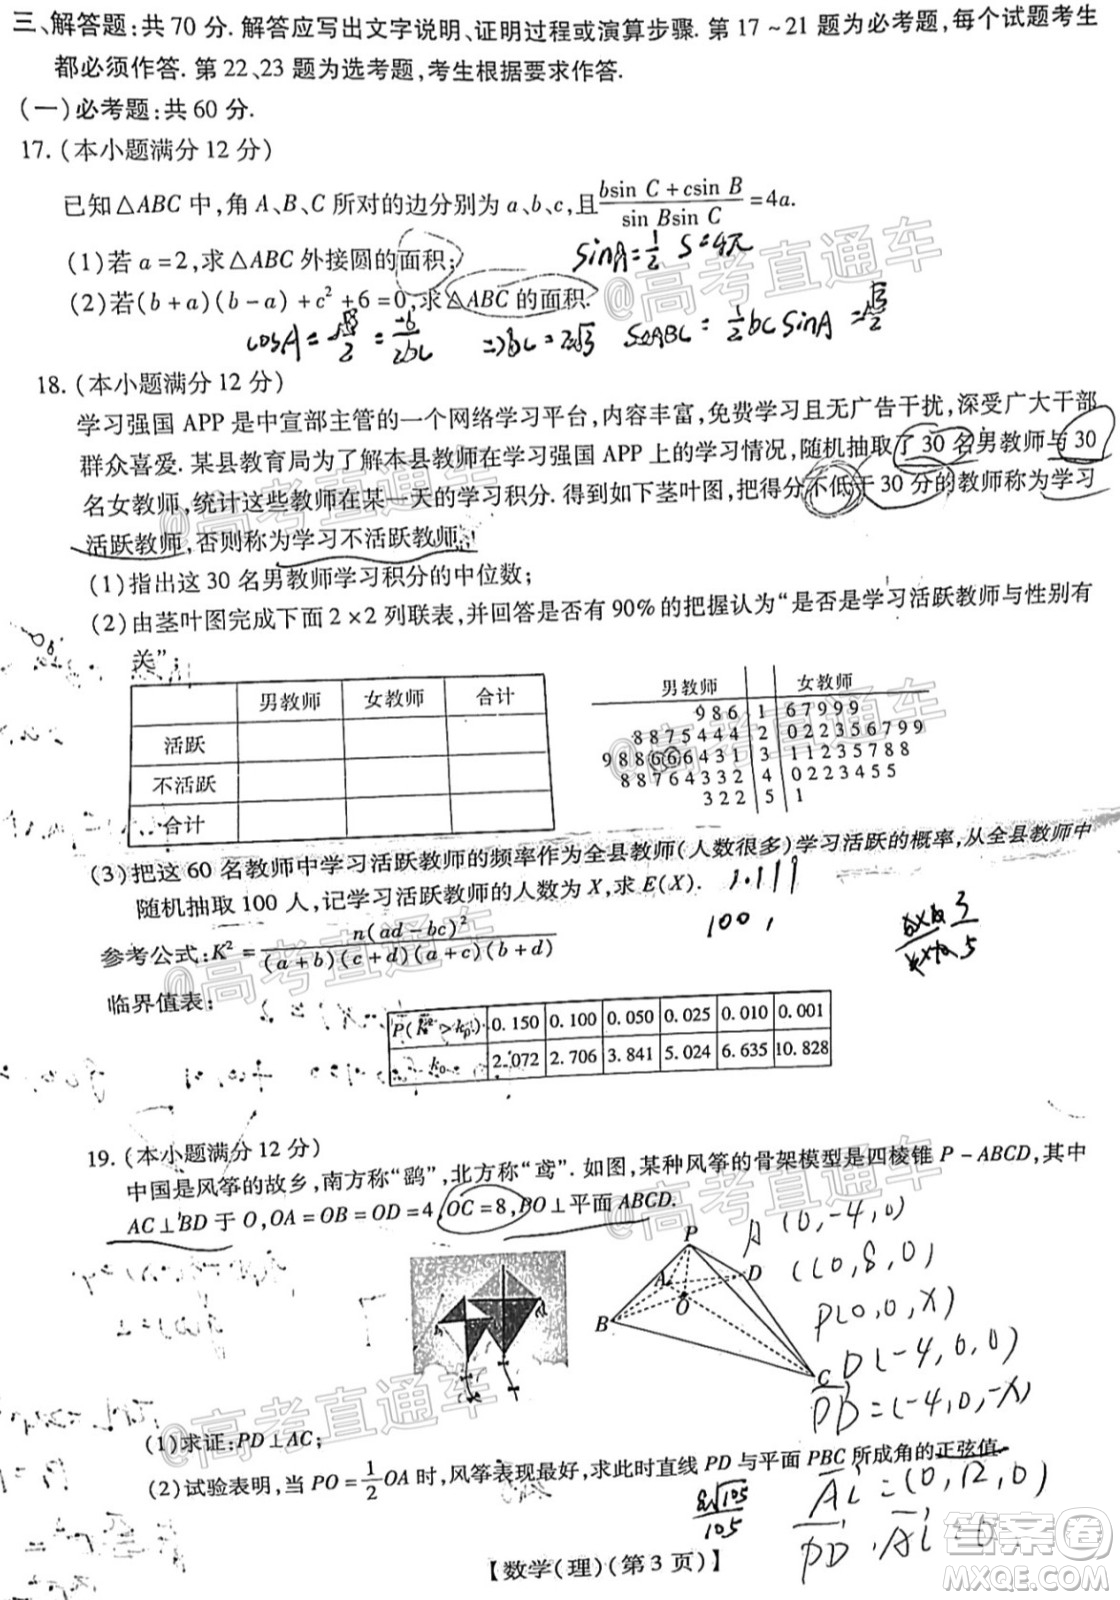 三、解答题:共 70 分. 解答应写出文字说明、证明过程或演算步骤. 第 17 ~ 21 题为必考题,每个试题考生
都必须作答. 第 22、23 题为选考题,考生根据要求作答.
(一)必考题:共 60 分.
17. (本小题满分 12 分)
已知△ABC 中,角 A、B、C 所对的边分别为 a、b、c,且 (bsin C + csin B)/(sin Bsin C) = 4a.
(1)若 a = 2,求△ABC 外接圆的面积;
sinA = 1/2 S = 4π
(2)若(b + a)(b - a) + c² + 6 = 0,求△ABC 的面积.
cosA = √3/2 = -6/2bc => bc = 2√3 S△ABC = 1/2 bc sinA = √3/2
18. (本小题满分 12 分)
学习强国 APP 是中宣部主管的一个网络学习平台,内容丰富,免费学习且无广告干扰,深受广大干部
群众喜爱. 某县教育局为了解本县教师在学习强国 APP 上的学习情况,随机抽取了 30 名男教师与 30
名女教师,统计这些教师在某一天的学习积分. 得到如下茎叶图,把得分不低于 30 分的教师称为学习
活跃教师,否则称为学习不活跃教师.
(1)指出这 30 名男教师学习积分的中位数;
(2)由茎叶图完成下面 2 × 2 列联表,并回答是否有 90% 的把握认为“是否是学习活跃教师与性别有
关”;
男教师 女教师 合计
活跃
不活跃
合计
男教师 女教师
9 8 6 1 6 7 9 9 9
8 8 7 5 4 4 4 2 0 2 2 2 3 5 6 7 9 9
9 8 8 6 6 6 4 3 1 3 1 1 2 3 5 7 8 8
8 8 7 6 4 3 3 2 4 0 2 2 3 4 5 5
3 2 2 5 1
(3)把这 60 名教师中学习活跃教师的频率作为全县教师(人数很多)学习活跃的概率,从全县教师中
随机抽取 100 人,记学习活跃教师的人数为 X,求 E(X).
参考公式:K² = n(ad - bc)²/((a + b)(c + d)(a + c)(b + d))
临界值表:
P(K² > k₀) 0.150 0.100 0.050 0.025 0.010 0.001
k₀ 2.072 2.706 3.841 5.024 6.635 10.828
19. (本小题满分 12 分)
中国是风筝的故乡,南方称“鹞”,北方称“鸢”. 如图,某种风筝的骨架模型是四棱锥 P - ABCD,其中
AC⊥BD 于 O,OA = OB = OD = 4,OC = 8,PO⊥平面 ABCD.
P
A
D
B
O
C
A (0, -4, 0)
C(0, 8, 0)
P(0, 0, X)
D(-4, 0, 0)
PD = (-4, 0, -X)
(1)求证:PD⊥AC;
(2)试验表明,当 PO = 1/2 OA 时,风筝表现最好,求此时直线 PD 与平面 PBC 所成角的正弦值.
AC = (0, 12, 0)
PD · AC = 0
【数学(理)(第 3 页)】
@高考直通车
@高考直通车
@高考直通车
@高考直通车
@高考直通车
@高考直通车
答案圈
MXQE.COM